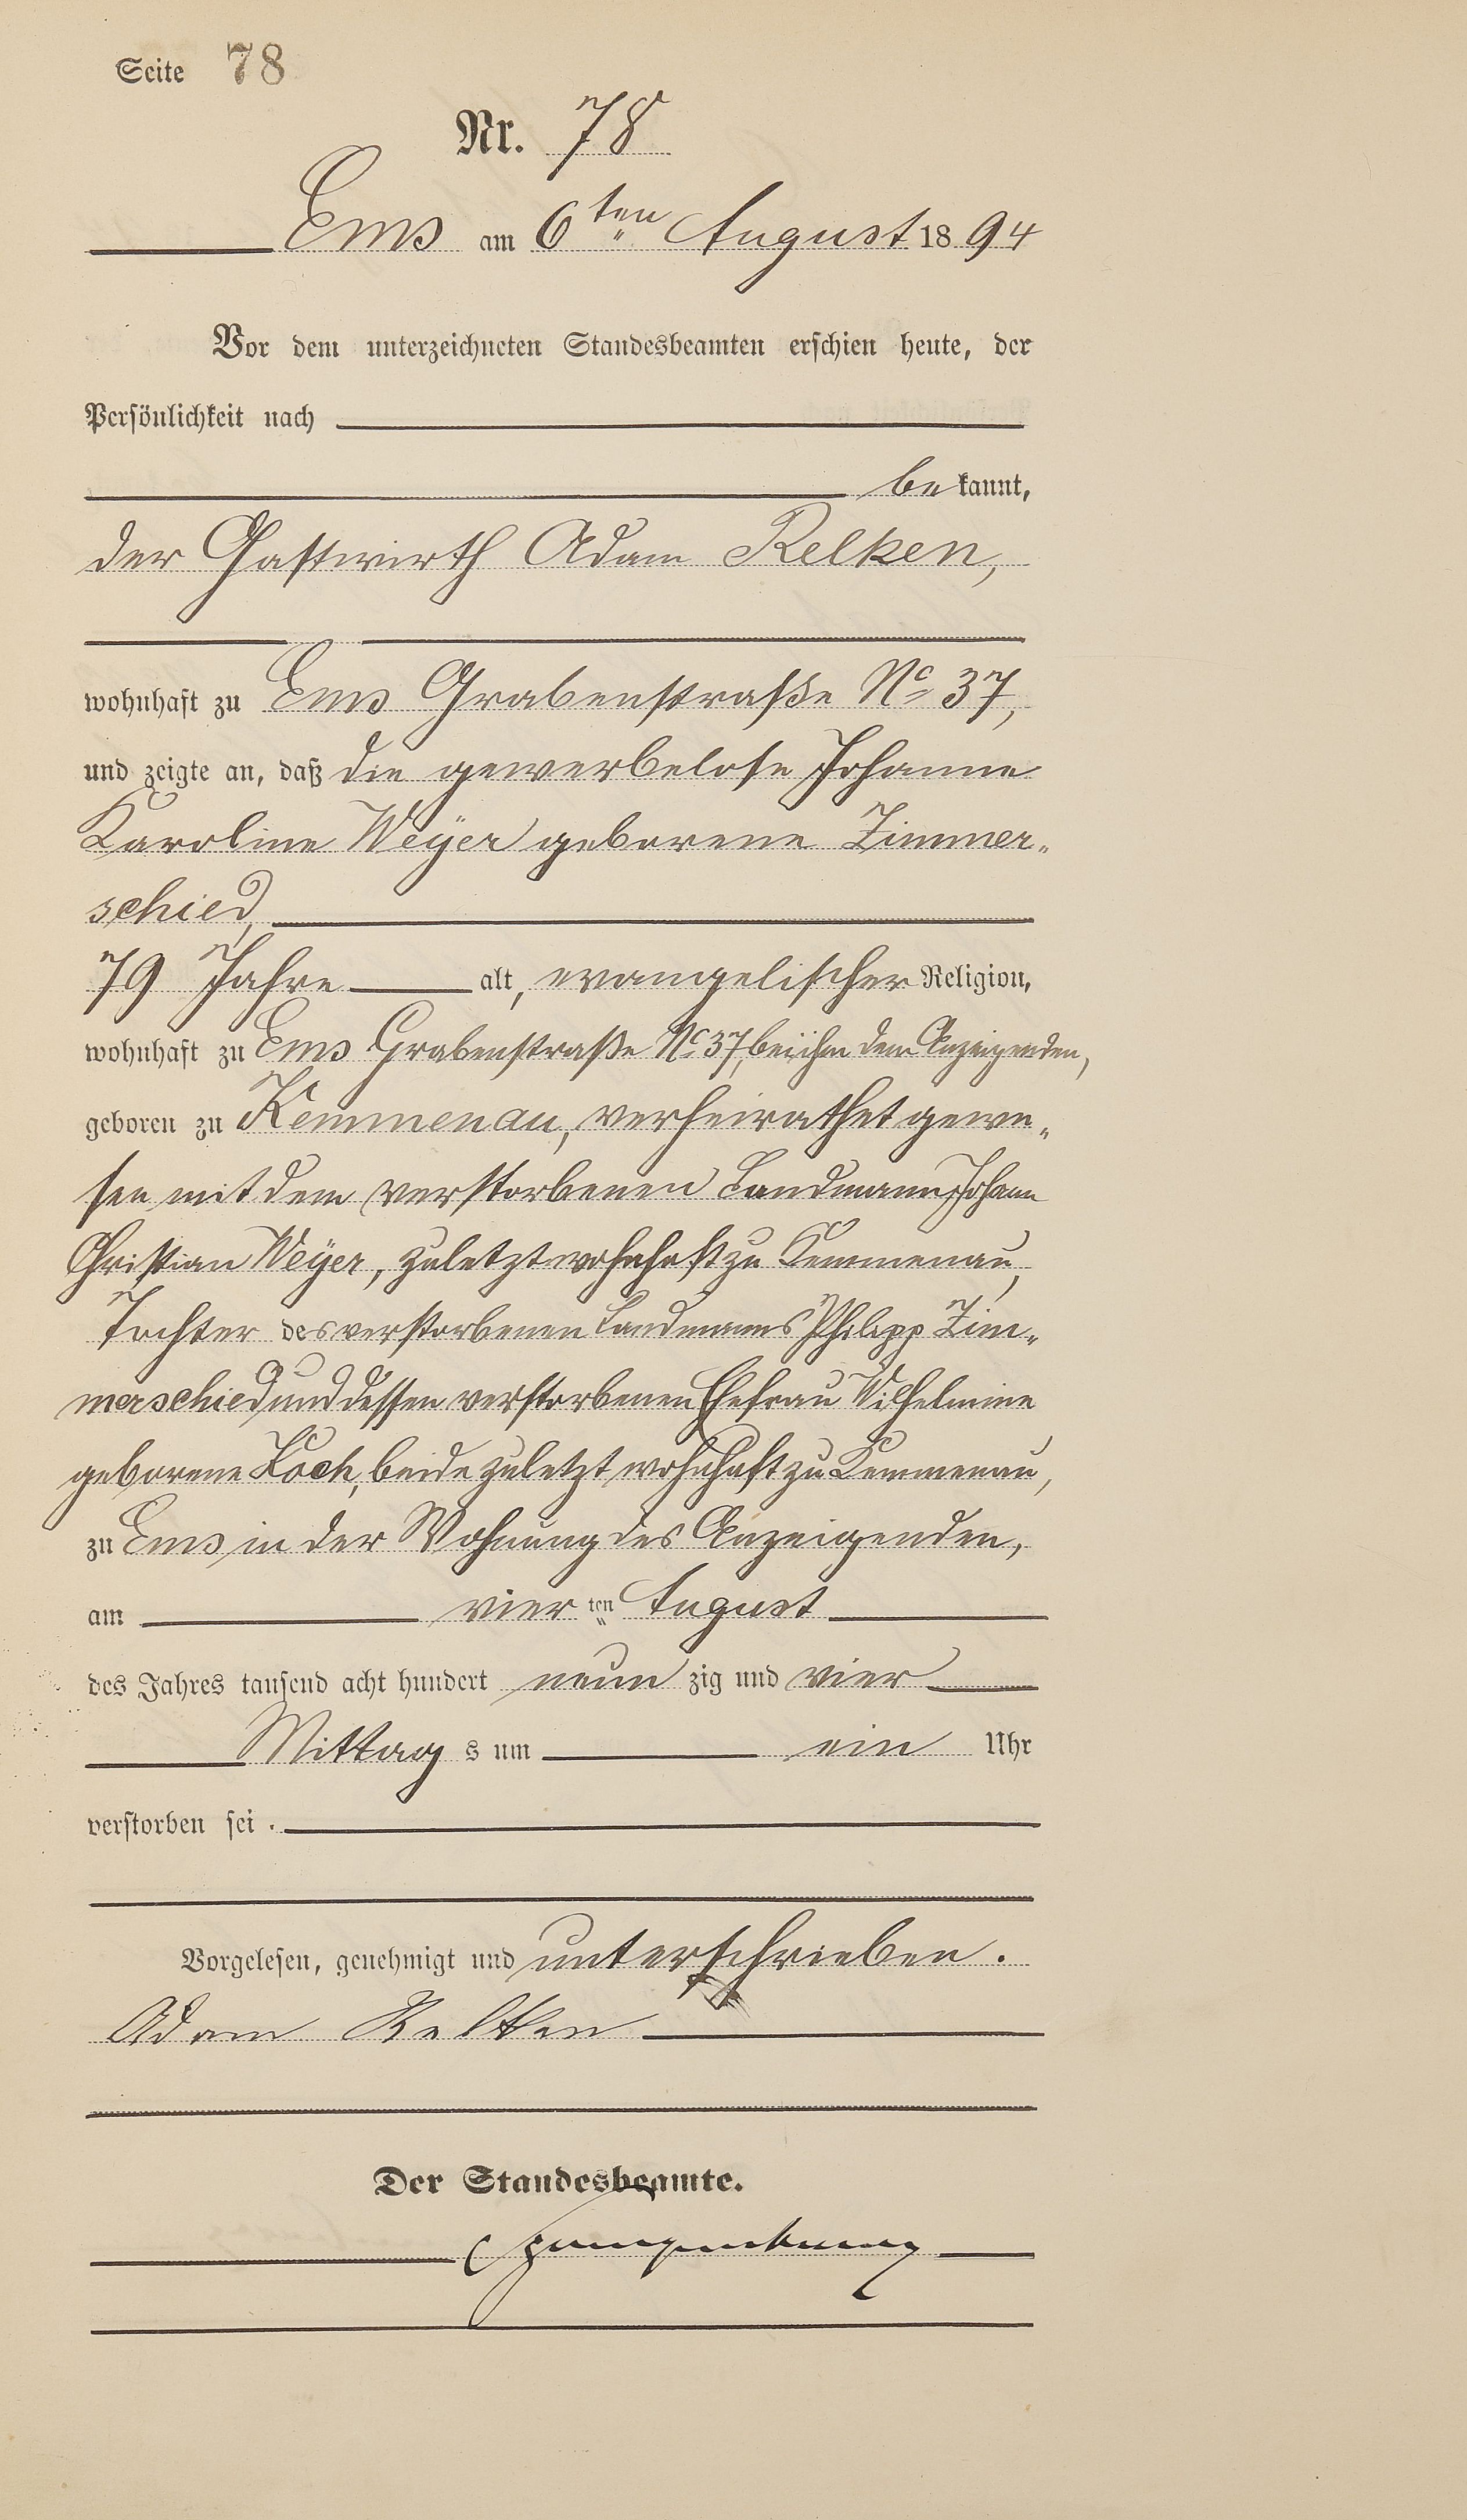 Seite 78
Nr. 78
Ems am 6ten August 1894
Vor dem unterzeichneten Standesbeamten erschien heute, der
Persönlichkeit nach
bekannt,
der Gastwirth Adam Relken,
wohnhaft zu Ems Grabenstraße No 37,
und zeigte an, daß die gewerbelose Johanne
Karoline Weÿer geborene Zimmer-
schied,
79 Jahre alt, evangelischer Religion,
wohnhaft zu Ems Grabenstraße No 37, bei ihm dem Anzeigenden,
geboren zu Kemmenau, verheirathet gewe-
sen mit dem verstorbenen Landmann Johann
Christian Weÿer, zuletzt wohnhaft zu Kemmenau,
Tochter des verstorbenen Landmanns Philipp Zim-
merschied und dessen verstorbenen Ehefrau Wilhelmine
geborene Koch, beide zuletzt wohnhaft zu Kemmenau,
zu Ems in der Wohnung des Anzeigenden,
am vierten August
des Jahres tausend acht hundert neunzig und vier
Mittags um ein Uhr
verstorben sei.
Vorgelesen, genehmigt und unterschrieben.
Adam Relken
Der Standesbeamte.